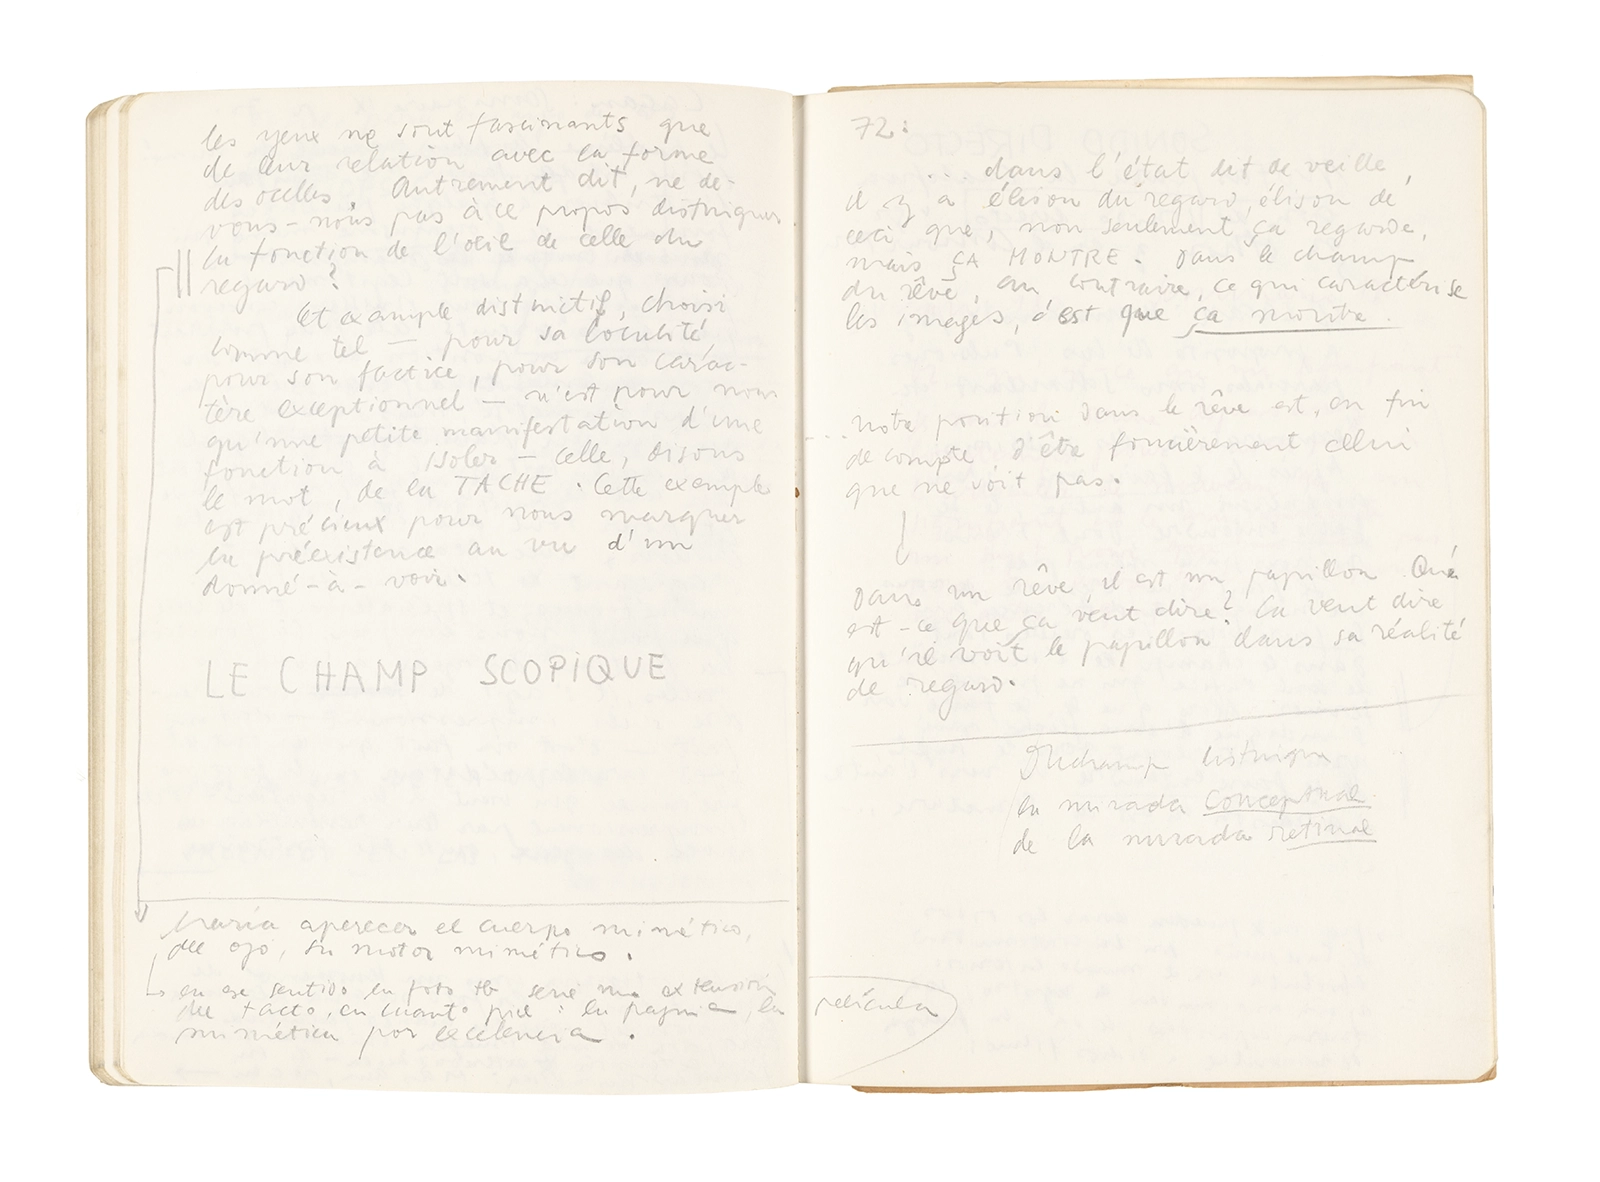 les yeux ne sont fascinants que
de leur relation avec la forme
des ocelles. Autrement dit, ne de-
vons-nous pas à ce propos distinguer
la fonction de l'oeil de celle du
regard?
Cet example distinctif, choisi
comme tel — pour sa localité,
pour son factice, pour son carac-
tère exceptionnel — n'est pour nous
qu'une petite manifestation d'une
fonction à isoler — celle, disons
le mot, de la TACHE. Cette example
est précieux pour nous marquer
la préexistence au vu d'un
donné-à-voir.
LE CHAMP SCOPIQUE
haría aparecer el cuerpo mimético,
del ojo, su motor mimético.
en ese sentido la foto tb sería una extensión
del tacto, en cuanto piel: la
mimética por excelencia.
película
72:
... dans l'état dit de veille,
il y a élision du regard, élision de
ceci que, non seulement ça regarde,
mais ÇA MONTRE. Dans le champ
du rêve, au contraire, ce qui caractérise
les images, c'est que ça montre.
... notre position dans le rêve est, en fin
de compte d'être foncièrement celui
que ne voit pas.
Dans un rêve, il est un papillon. Qué
est-ce que ça veut dire? Ça veut dire
qu'il voit le papillon dans sa réalité
de regard.
Duchamp distingue
la mirada conceptual
de la mirada retinal